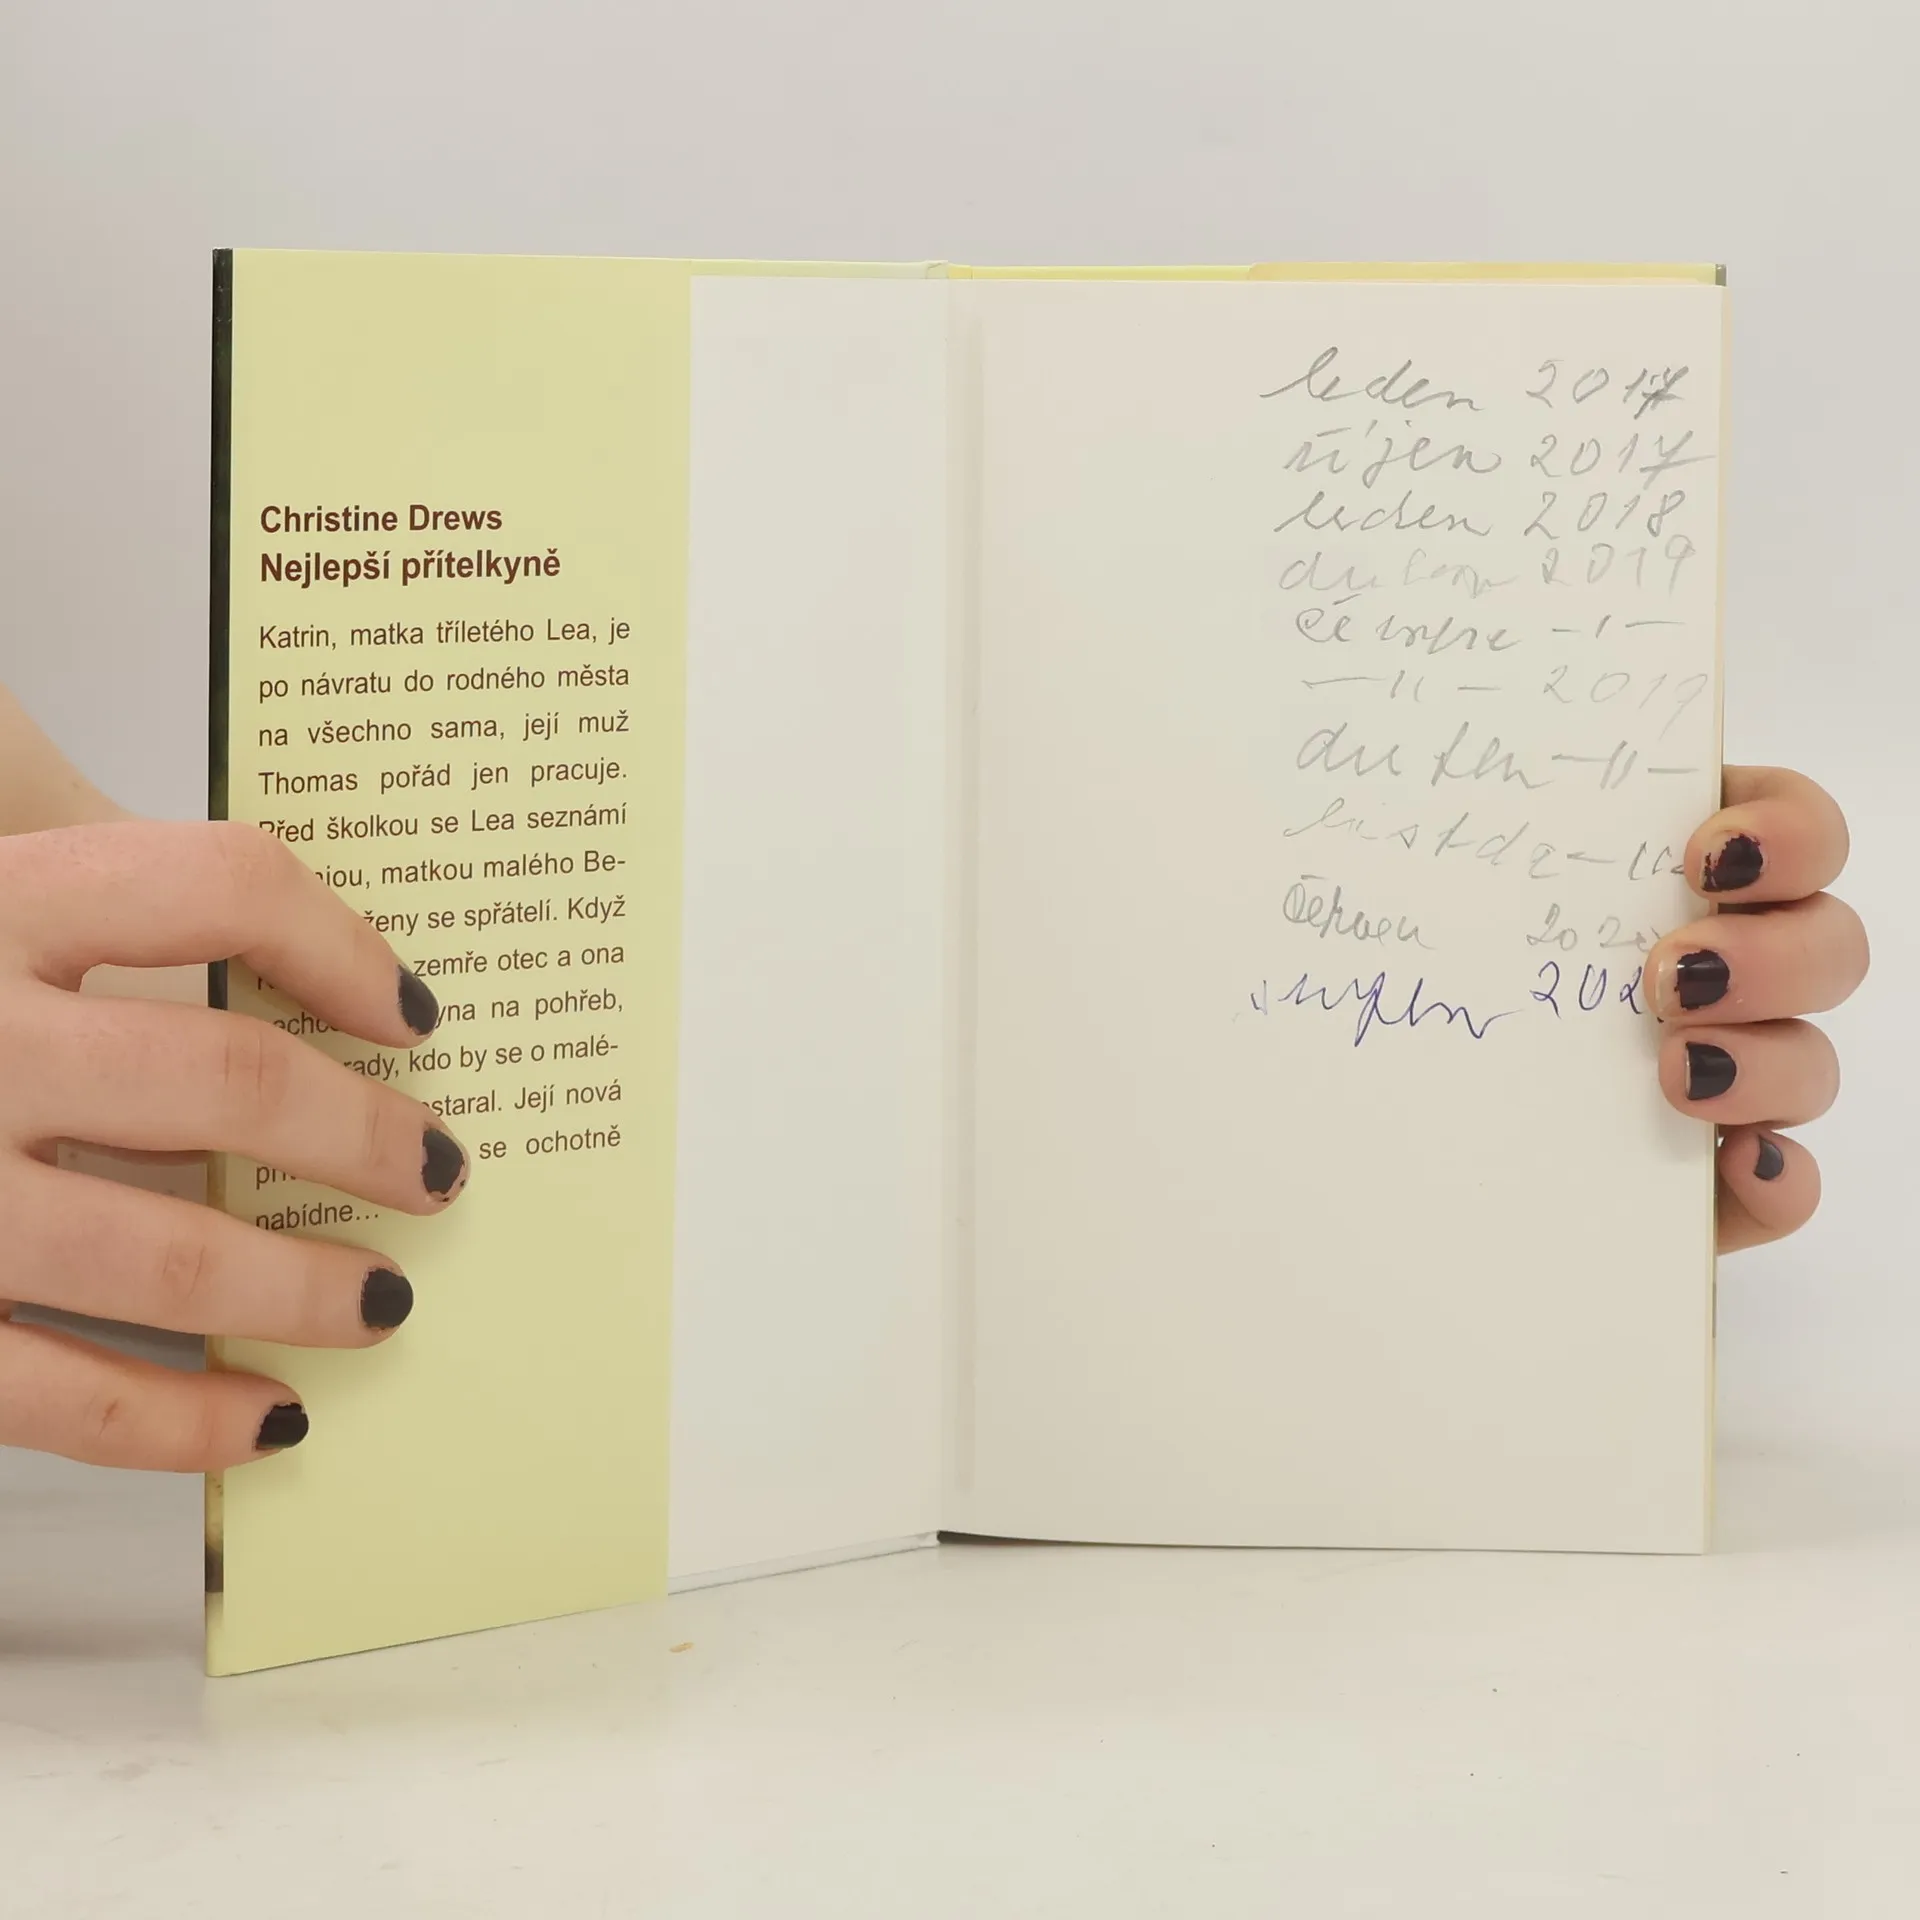 Christine Drews
Nejlepší přítelkyně
Katrin, matka tříletého Lea, je
po návratu do rodného města
na všechno sama, její muž
Thomas pořád jen pracuje.
Před školkou se Lea seznámí
niou, matkou malého Be-
ženy se spřátelí. Když
zemře otec a ona
na pohřeb,
rady, kdo by se o malé-
staral. Její nová
se ochotně
nabídne...
leden 2017
říjen 2017
leden 2018
duben 2019
-"-
-"- 2019
duben -"-
červen
srpen